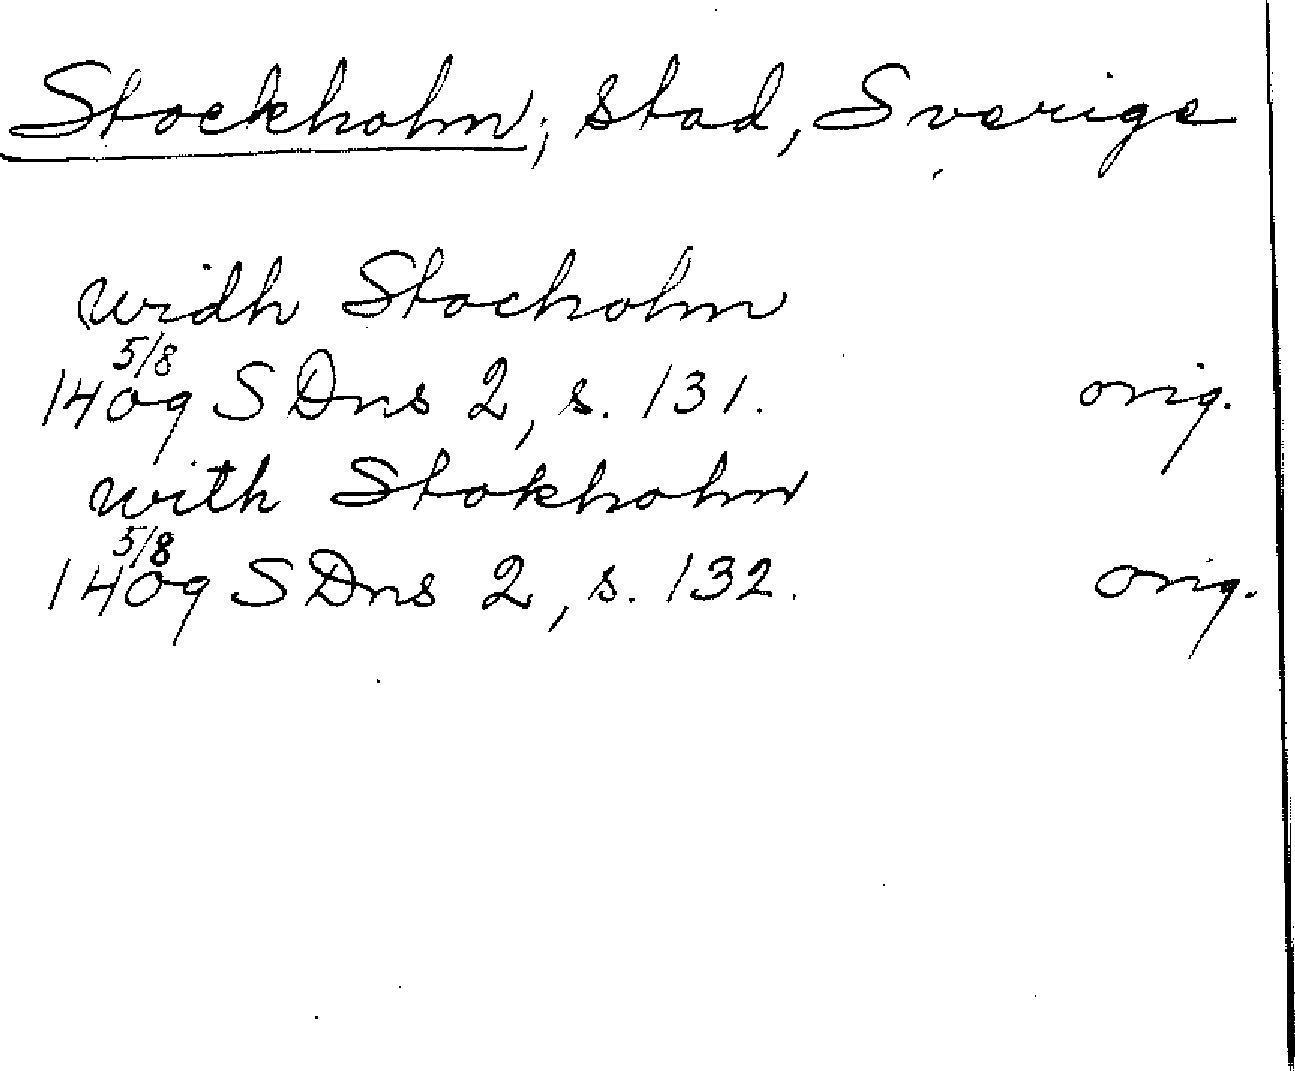 Stockholm, stad, Sverige
widh Stocholm
5/8
1409 SDns 2, s. 131. orig.
with Stokholm
5/8
1409 SDns 2, s. 132. orig.